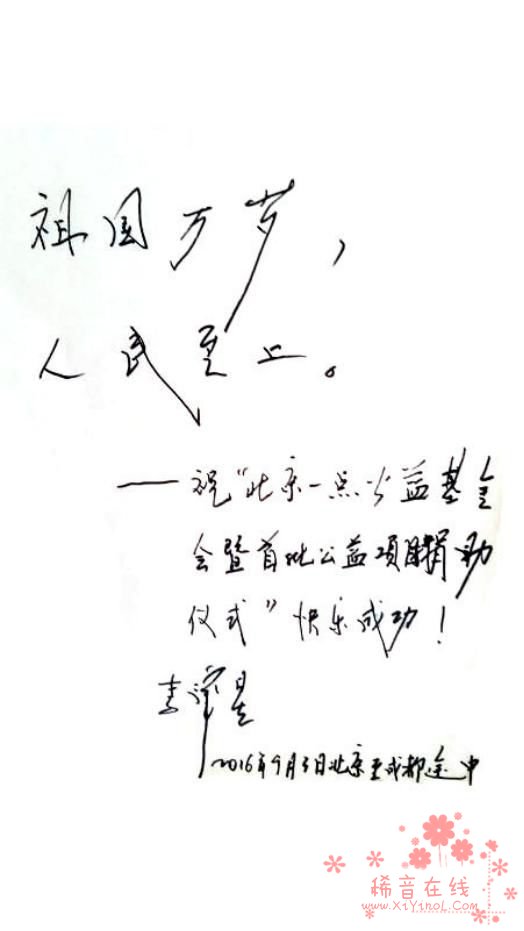 祖国万岁，
人民至上。
——祝“北京一点公益基金
会暨首批公益项目捐助
仪式”快乐成功！
李肇星
2016年9月3日北京至成都途中
稀音在线
www.XiYinOL.Com